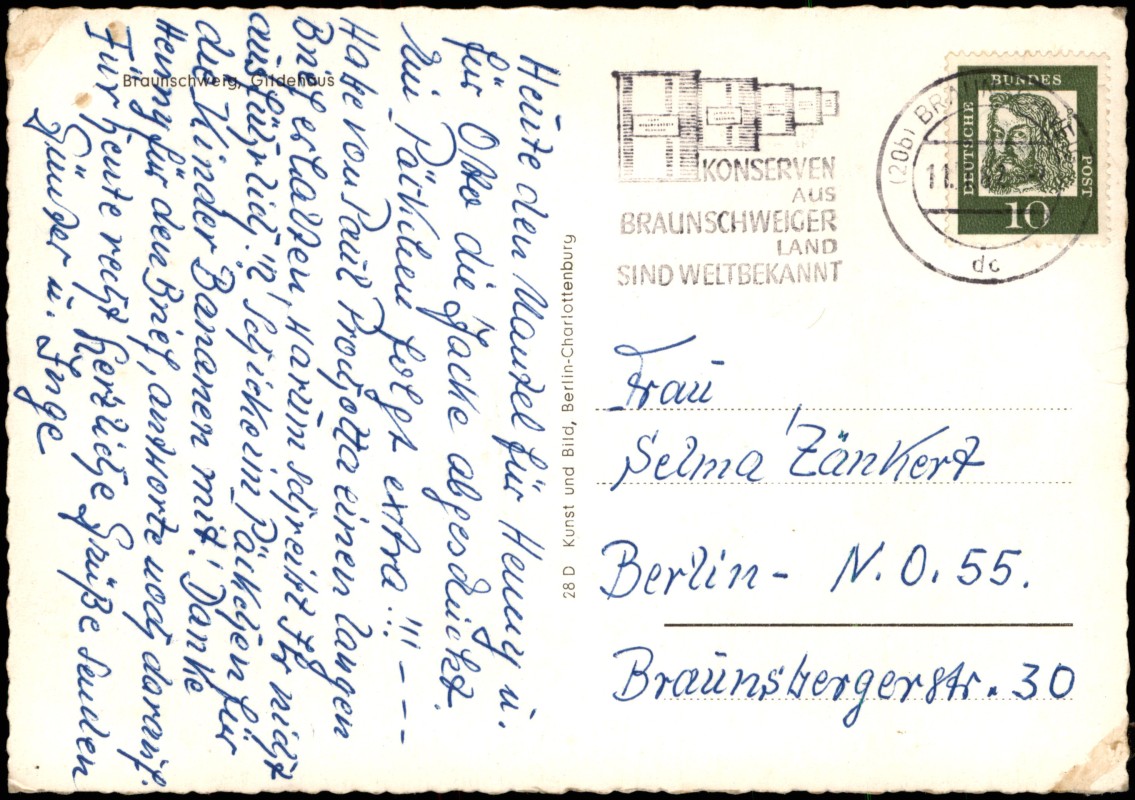 Braunschweig, Gildehaus
Heute den Mantel für Henny u.
für Otto die Jacke abgeschickt.
Ein Päckchen folgt extra!!! - - - -
Habe von Paul Proschotta einen langen
Brief erhalten, warum schreibt Ihr nicht
ausführlich? Schick im Päckchen für
die Kinder Bananen mit. Danke
Henny für den Brief, antworte noch darauf.
Für heute recht herzliche Grüße senden
Günter u. Inge
28 D Kunst und Bild, Berlin-Charlottenburg
KONSERVEN
AUS
BRAUNSCHWEIGER
LAND
SIND WELTBEKANNT
(20b) BRAUNSCHWEIG
11.
dc
DEUTSCHE
BUNDES
POST
10
Frau
Selma Zänkert
Berlin - N.O. 55.
Braunsbergerstr. 30